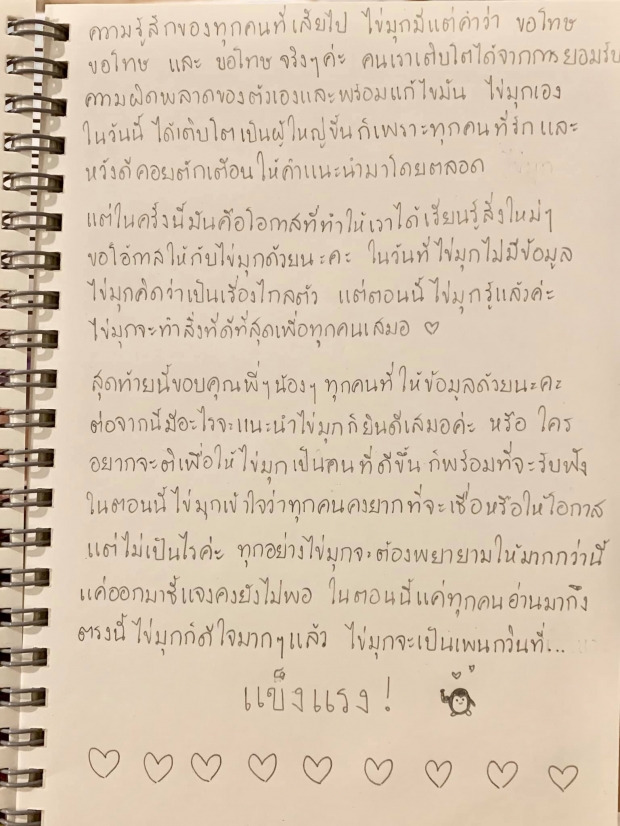 ความรู้สึกของทุกคนที่เสียไป ไข่มุกมีแต่คำว่า ขอโทษ
ขอโทษ และ ขอโทษ จริงๆค่ะ คนเราเติบโตได้จากการยอมรับ
ความผิดพลาดของตัวเองและพร้อมแก้ไขมัน ไข่มุกเอง
ในวันนี้ ได้เติบโตเป็นผู้ใหญ่ขึ้น ก็เพราะทุกคน ที่รักและ
หวังดีคอยตักเตือน ให้คำแนะนำมาโดยตลอด
แต่ในครั้งนี้มันคือโอกาสที่ทำให้เราได้เรียนรู้สิ่งใหม่ๆ
ขอโอกาสให้กับไข่มุกด้วยนะคะ ในวันที่ไข่มุกไม่มีข้อมูล
ไข่มุกคิดว่าเป็นเรื่องไกลตัว แต่ตอนนี้ไข่มุกรู้แล้วค่ะ
ไข่มุกจะทำสิ่งที่ดีที่สุดเพื่อทุกคนเสมอ ♡
สุดท้ายนี้ขอบคุณพี่ๆน้องๆ ทุกคนที่ให้ข้อมูลด้วยนะคะ
ต่อจากนี้มีอะไรจะแนะนำไข่มุกก็ยินดีเสมอค่ะ หรือ ใคร
อยากจะติเพื่อให้ไข่มุกเป็นคนที่ดีขึ้น ก็พร้อมที่จะรับฟัง
ในตอนนี้ไข่มุกเข้าใจว่าทุกคนคงยากที่จะเชื่อหรือให้โอกาส
แต่ไม่เป็นไรค่ะ ทุกอย่างไข่มุกจะต้องพยายามให้มากกว่านี้
แค่ออกมาชี้แจงคงยังไม่พอ ในตอนนี้แค่ทุกคนอ่านมาถึง
ตรงนี้ไข่มุกก็ดีใจมากๆแล้ว ไข่มุกจะเป็นเพนกวินที่...
แข็งแรง!
♡ ♡ ♡ ♡ ♡ ♡ ♡ ♡ ♡